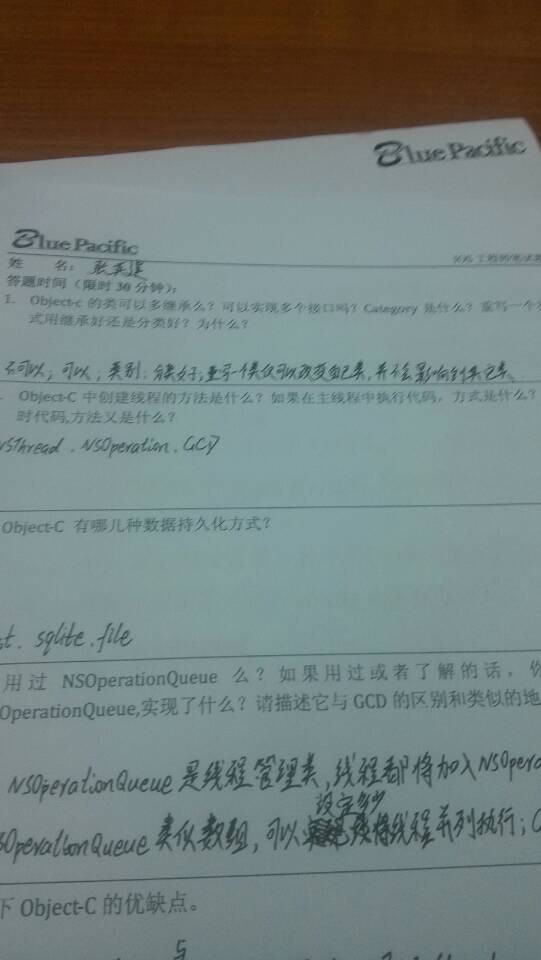 Blue Pacific
Blue Pacific
姓 名：
答题时间（限时 30 分钟）：
1. Object-c 的类可以多继承么？可以实现多个接口吗？Category 是什么？重写一个
式用继承好还是分类好？为什么？
不可以；可以；类别；分类好；重写一个类仅可以改变自己类，并不会影响到其它类。
Object-C 中创建线程的方法是什么？如果在主线程中执行代码，方式是什么？
时代码,方法又是什么？
NSThread．NSOperation．GCD
Object-C 有哪几种数据持久化方式？
st．sqlite．file
用过 NSOperationQueue 么？如果用过或者了解的话，
OperationQueue,实现了什么？请描述它与 GCD 的区别和类似的地
NSOperationQueue 是线程管理类，线程都将加入NSOpera
设定多少
SOperationQueue 类似数组，可以 线程并列执行；
下 Object-C 的优缺点。